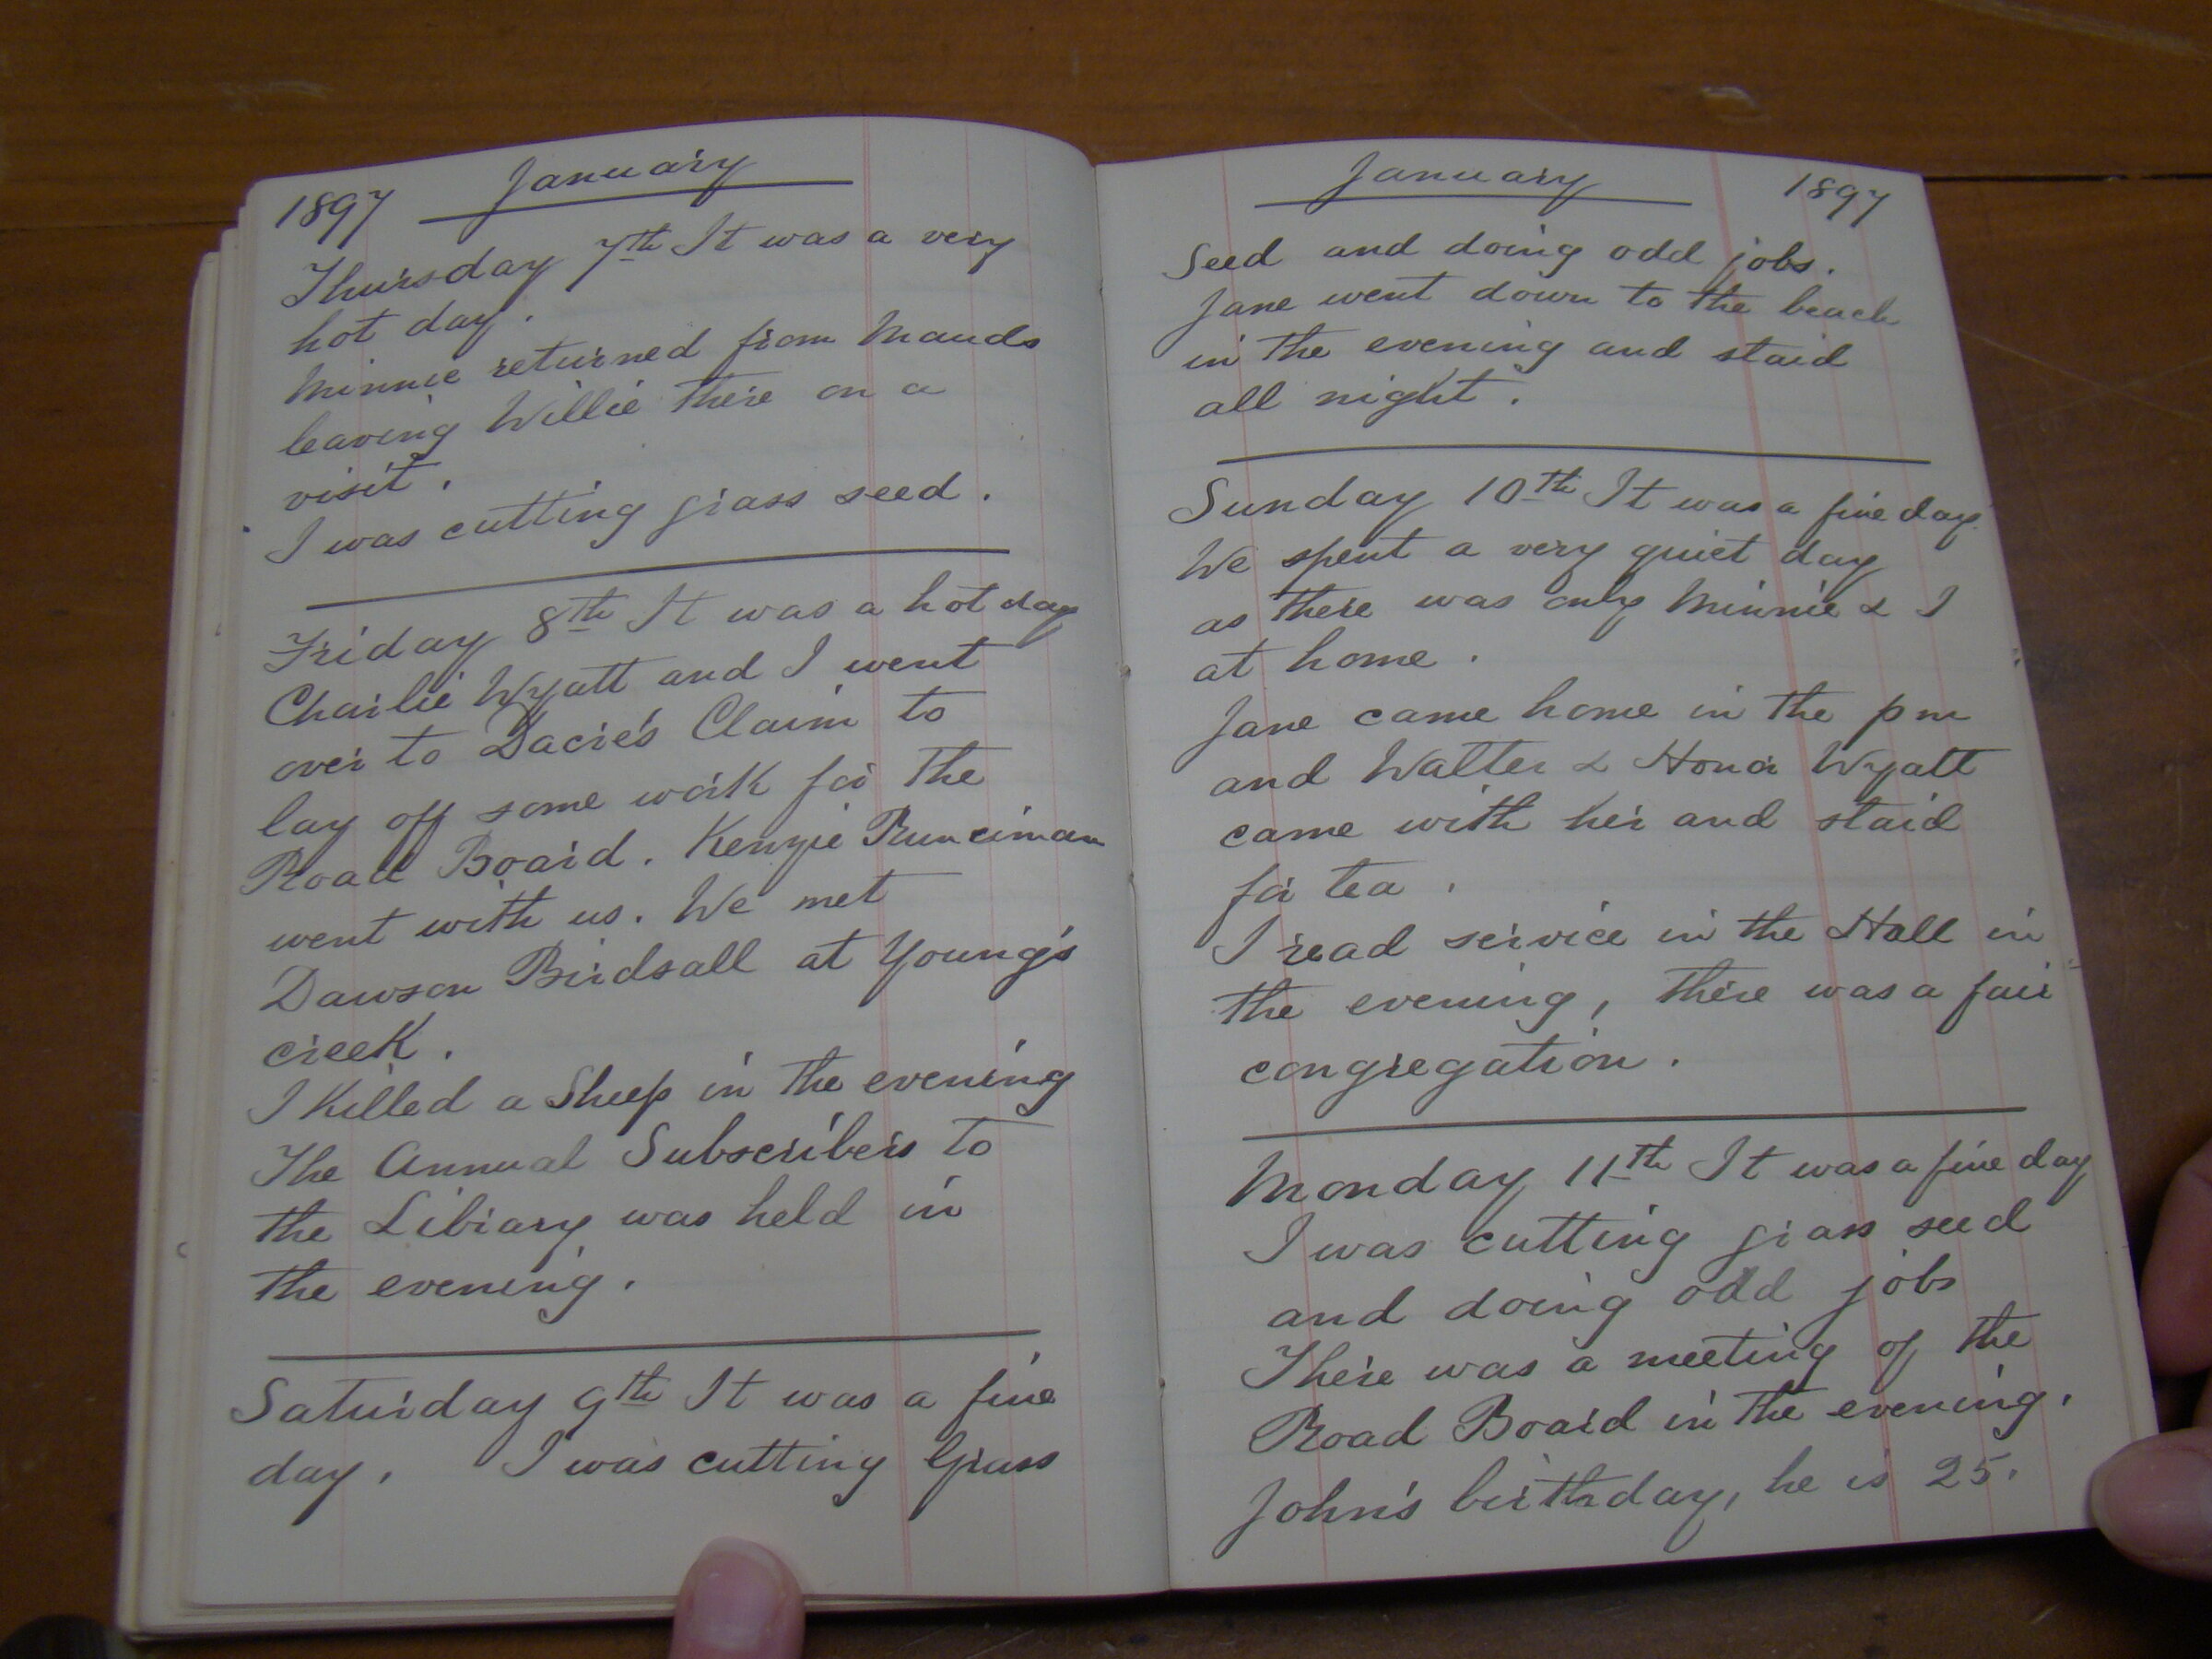 1897 January
Thursday 7th It was a very
hot day.
Minnie returned from Mauds
leaving Willie there on a
visit.
I was cutting grass seed.
Friday 8th It was a hot day
Charlie Wyatt and I went
over to Dacre's Claim to
lay off some work for the
Road Board. Kenzie Runciman
went with us. We met
Dawson Birdsall at Young's
creek.
I Killed a Sheep in the evening
The Annual Subscribers to
the Library was held in
the evening.
Saturday 9th It was a fine
day. I was cutting Grass
January 1897
Seed and doing odd jobs.
Jane went down to the beach
in the evening and staid
all night.
Sunday 10th It was a fine day.
We spent a very quiet day
as there was only Minnie & I
at home.
Jane came home in the pm
and Walter & Honor Wyatt
came with her and staid
for tea.
I read service in the Hall in
the evening, there was a fair
congregation.
Monday 11th It was a fine day
I was cutting grass seed
and doing odd jobs
There was a meeting of the
Road Board in the evening.
John's birthday, he is 25.